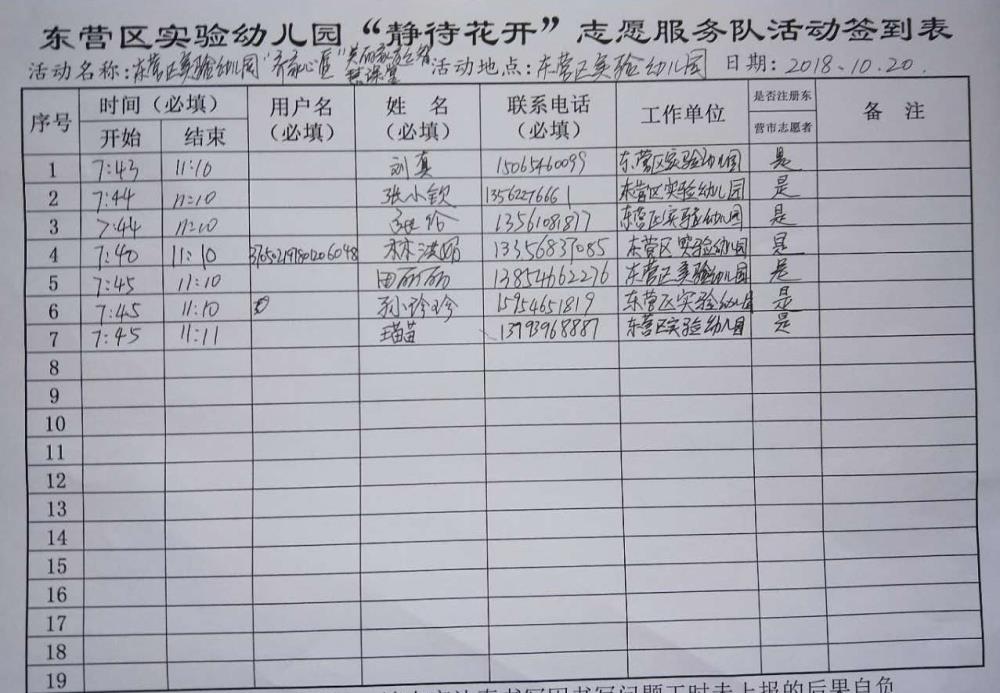 东营区实验幼儿园“静待花开”志愿服务队活动签到表
活动名称：东营区实验幼儿园“齐家心医” 活动地点：东营区实验幼儿园 日期：2018.10.20.
序号 时间（必填） 用户名（必填） 姓 名（必填） 联系电话（必填） 工作单位 是否注册东营市志愿者 备 注
开始 结束
1 7:43 11:10 刘真 15065460099 东营区实验幼儿园 是
2 7:44 11:10 张小钦 13562276661 东营区实验幼儿园 是
3 7:44 11:10 13561081877 东营区实验幼儿园 是
4 7:40 11:10 370502197801206048 13356837085 东营区实验幼儿园 是
5 7:45 11:10 田丽丽 13854662276 东营区实验幼儿园 是
6 7:45 11:10 孙珍珍 15954651819 东营区实验幼儿园 是
7 7:45 11:11 苗 13793968887 东营区实验幼儿园 是
8
9
10
11
12
13
14
15
16
17
18
19
书写问题工时未上报的后果自负